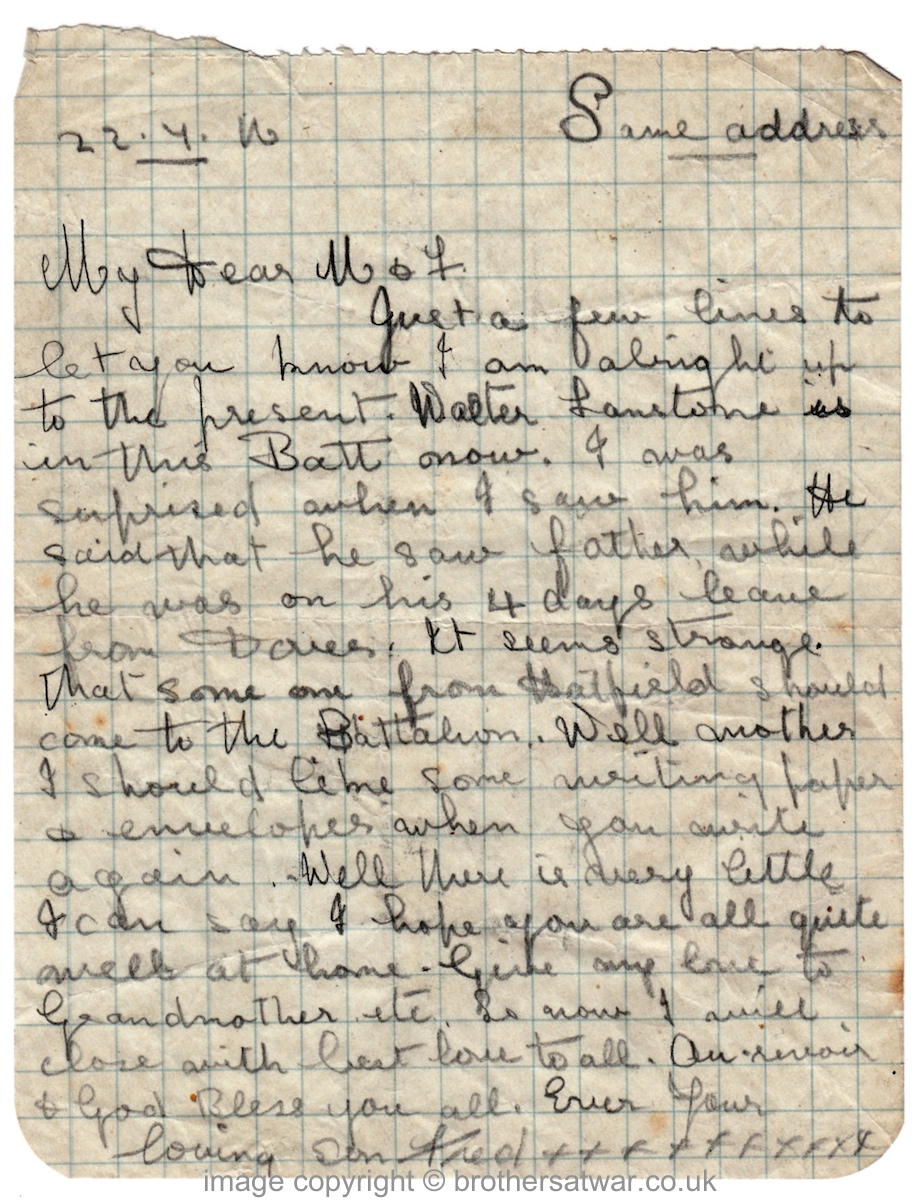 22.7.16 Same address
My Dear M & F.
Just a few lines to
let you know I am alright up
to the present. Walter Lanstone is
in this Batt now. I was
surprised when I saw him. He
said that he saw father while
he was on his 4 days leave
from Dover. It seems strange.
that some one from Hatfield should
come to the Battalion. Well mother
I should like some writing paper
& envelopes when you write
again. Well there is very little
I can say I hope you are all quite
well at home. Give my love to
Grandmother etc. So now I will
close with best love to all. Au-revoir
& God Bless you all. Ever Your
loving son Fred ++++++++++
image copyright © brothersatwar.co.uk